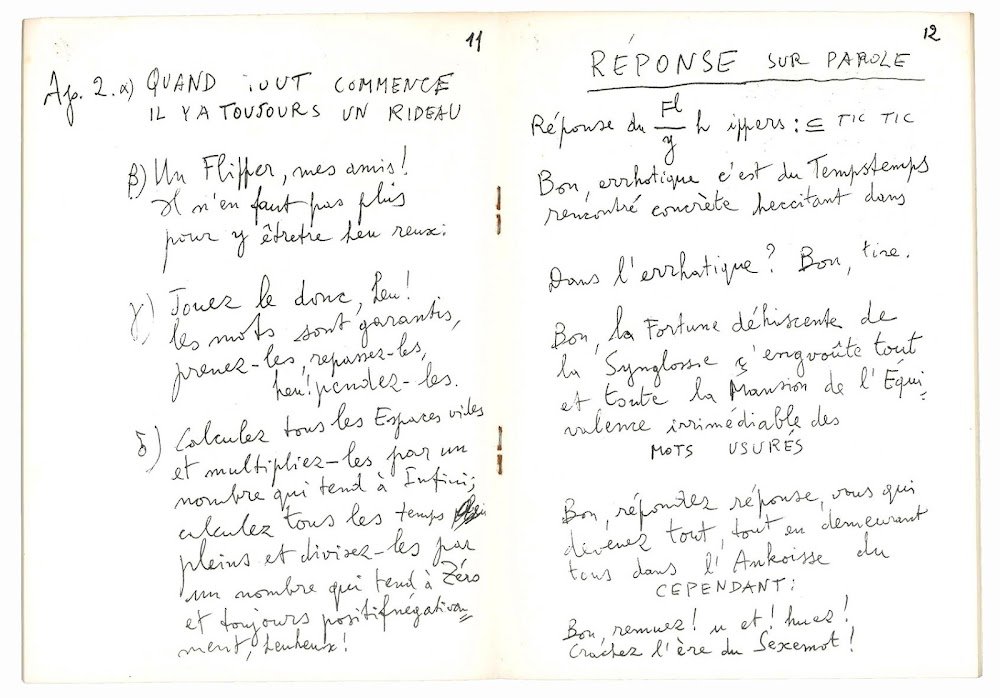 11
Ap. 2. α) QUAND TOUT COMMENCE
IL Y A TOUJOURS UN RIDEAU
β) Un Flipper, mes amis!
Il n'en faut pas plus
pour y êtretre heu reux:
γ) Jouez le donc, heu!
les mots sont garantis,
prenez-les, repassez-les,
heu! pendez-les.
δ) Calculez tous les Espaces vides
et multipliez-les par un
nombre qui tend à Infini;
calculez tous les temps
pleins et divisez-les par
un nombre qui tend à Zéro
et toujours positifnégativom=
ment, heuheux!
12
RÉPONSE SUR PAROLE
Réponse du Fl/y h ippers: ⊆ TIC TIC
Bon, errhotique c'est du Tempstemps
rencontré concrète heccitant dans
Dans l'errhatique? Bon, tire.
Bon, la Fortune déhiscente de
la Synglosse ç'engvoûte tout
et toute la Mansion de l'Équi=
valence irrimédiable des
MOTS USURÉS
Bon, répondez réponse, vous qui
devenez tout, tout en demeurant
tous dans l'Ankoisse du
CEPENDANT:
Bon, remuez! u et! huez!
Crachez l'ère du Sexemot!